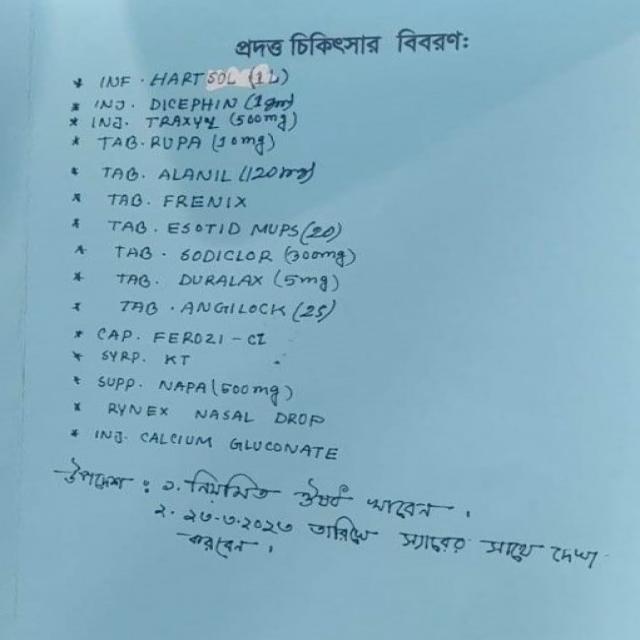 প্রদত্ত চিকিৎসার বিবরণঃ
* INF. HARTSOL (1L)
* INJ. DICEPHIN (1gm)
* INJ. TRAXYL (500mg)
* TAB. RUPA (10mg)
* TAB. ALANIL (120mg)
* TAB. FRENIX
* TAB. ESOTID MUPS (20)
* TAB. SODICLOR (300mg)
* TAB. DURALAX (5mg)
* TAB. ANGILOCK (25)
* CAP. FEROZI-CI
* SYRP. KT
* SUPP. NAPA (500mg)
* RYNEX NASAL DROP
* INJ. CALCIUM GLUCONATE
উপদেশ : ১. নিয়মিত ঔষধ খাবেন।
২. ২৩-৩-২০২৩ তারিখে স্যারের সাথে দেখা
করবেন।